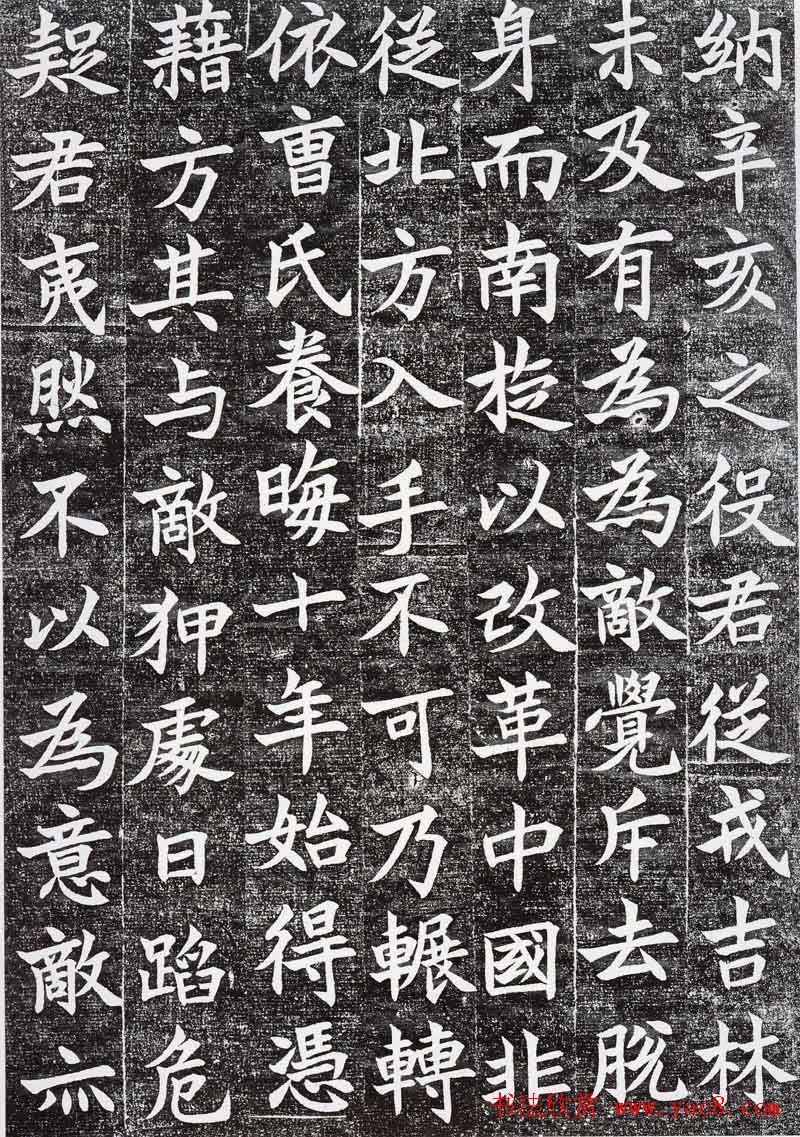 納辛亥之役君從戎吉林
未及有為為敵覺斥去脫
身而南旋以改革中國非
從北方入手不可乃輾轉
依曹氏養晦十年始得憑
藉方其与敵狎處日蹈危
疑君夷然不以為意敵亦
书法欣赏 www.yac8.com